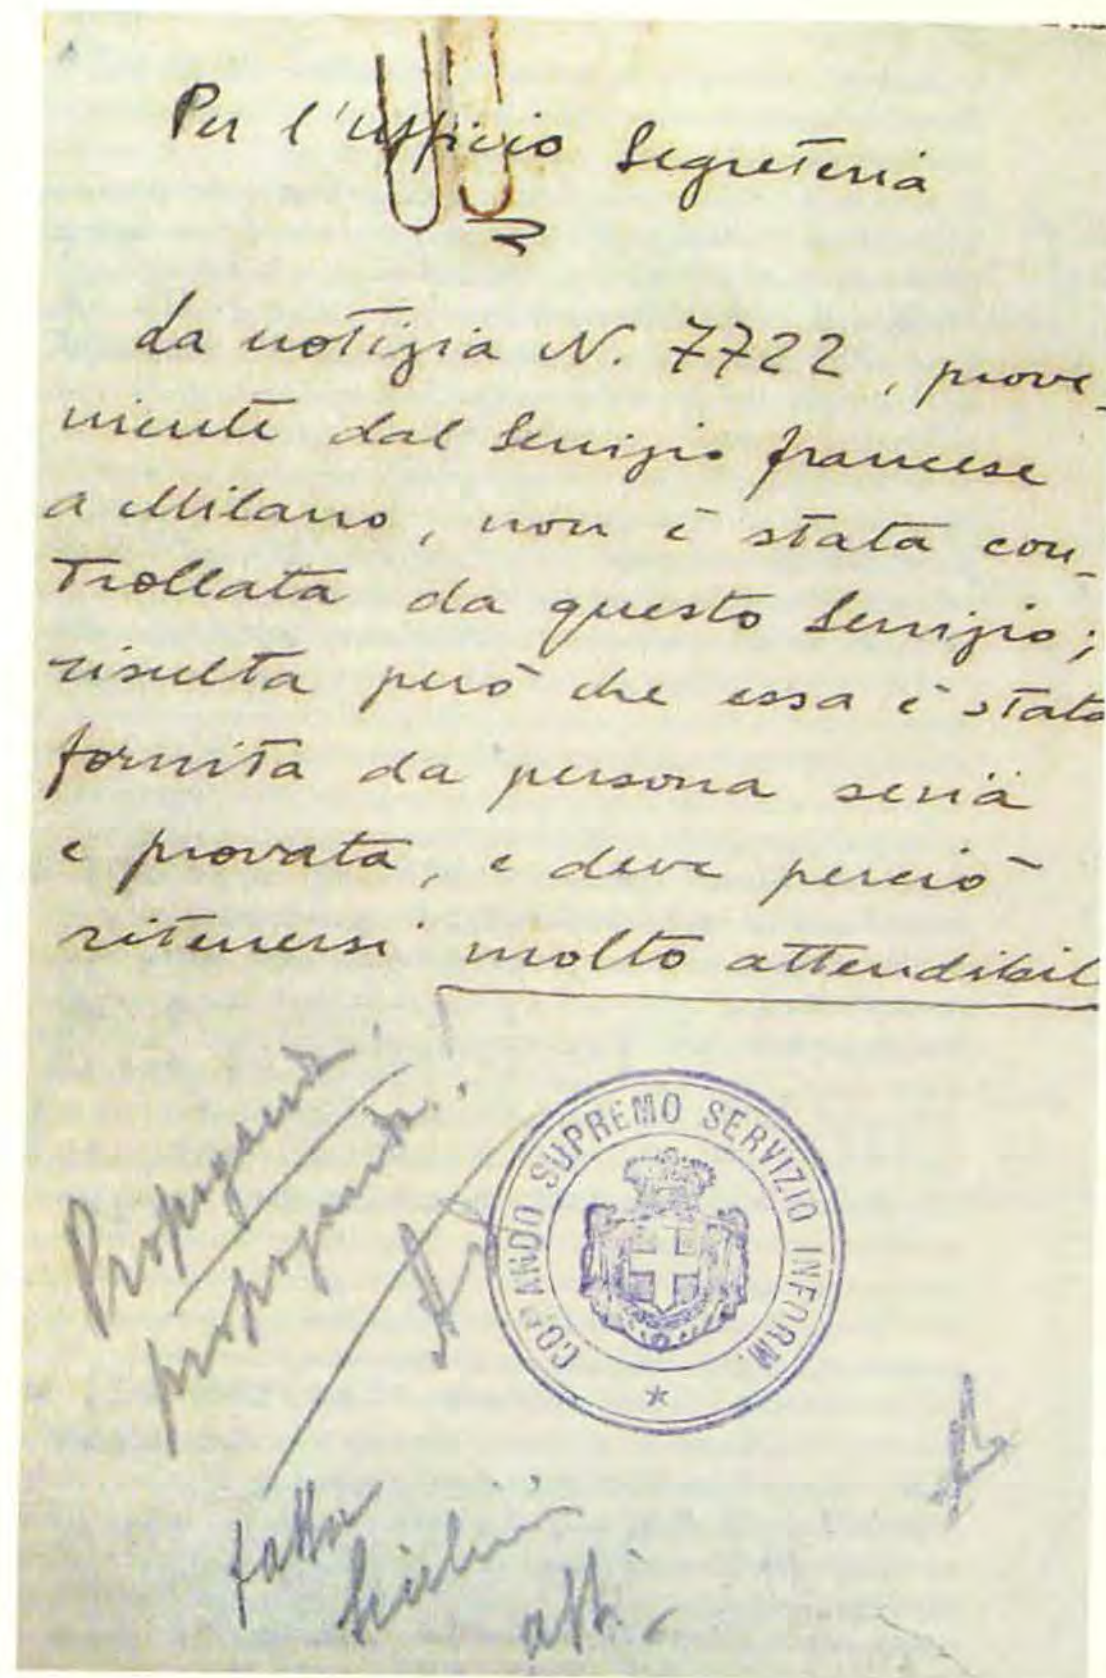 Per l'Ufficio Segreteria
La notizia N. 7722, prove-
niente dal Servizio francese
a Milano, non è stata con-
trollata da questo Servizio;
risulta però che essa è stata
fornita da persona seria
e provata, e deve perciò
ritenersi molto attendibil
Propaganda
propaganda..!
COMANDO SUPREMO SERVIZIO INFORM.
*
atti.